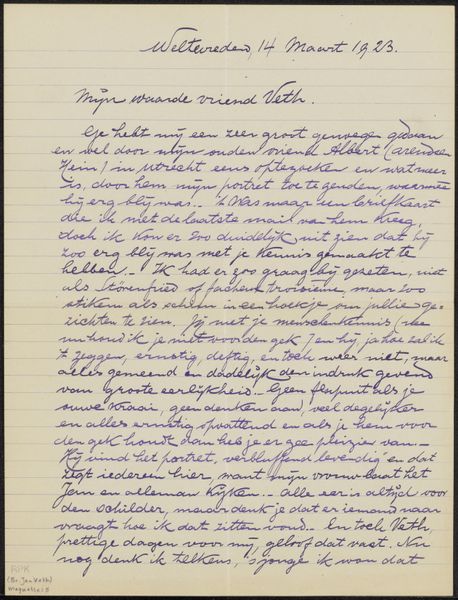 Weltevreden, 14 Maart 1923.
Mijn waarde vriend Veth.
Je hebt mij een zeer groot genoegen gedaan
en wel door mijn ouden vriend Albert (Arendsen
Hein) in Utrecht eens optezoeken en wat meer
is, door hem mijn portret toe te zenden, waarmee
hij erg blij was. - 't Was maar een briefkaart
die ik met de laatste mail van hem kreeg,
doch ik kon er zoo duidelijk uit zien dat hij
zoo erg blij was met je kennis gemaakt te
hebben. - Ik had er zoo graag bij gezeten, niet
als Störenfried of fâcheux troisième, maar zoo
stiekem als schim in een hoekje om jullie ge-
zichten te zien. Jij met je menschenkennis (nee
nu houd ik je niet voor den gek) en hij, ja hoe zal ik
't zeggen, ernstig, deftig, en toch weer niet, maar
alles gemeend en dadelijk den indruk gevend
van groote eerlijkheid. - Geen flapuit als je
ouwe Kraai, geen denken aan, veel degelijker
en alles ernstig opvattend en als je hem voor
den gek houdt dan heb je er gee pleizier van. -
Hij vind het portret, verbluffend levendig en dat
zegt iedereen hier, want mijn vrouw laat het
Jan en alleman kijken. - Alle eer is altijd voor
den schilder, maar denk je dat er iemand naar
vraagt hoe ik dat zitten vond. - En toch Veth,
prettige dagen voor mij, geloof dat vast. Nu
nog denk ik telkens, s'jonge ik won dat
RPK
(Br. Jan Veth)